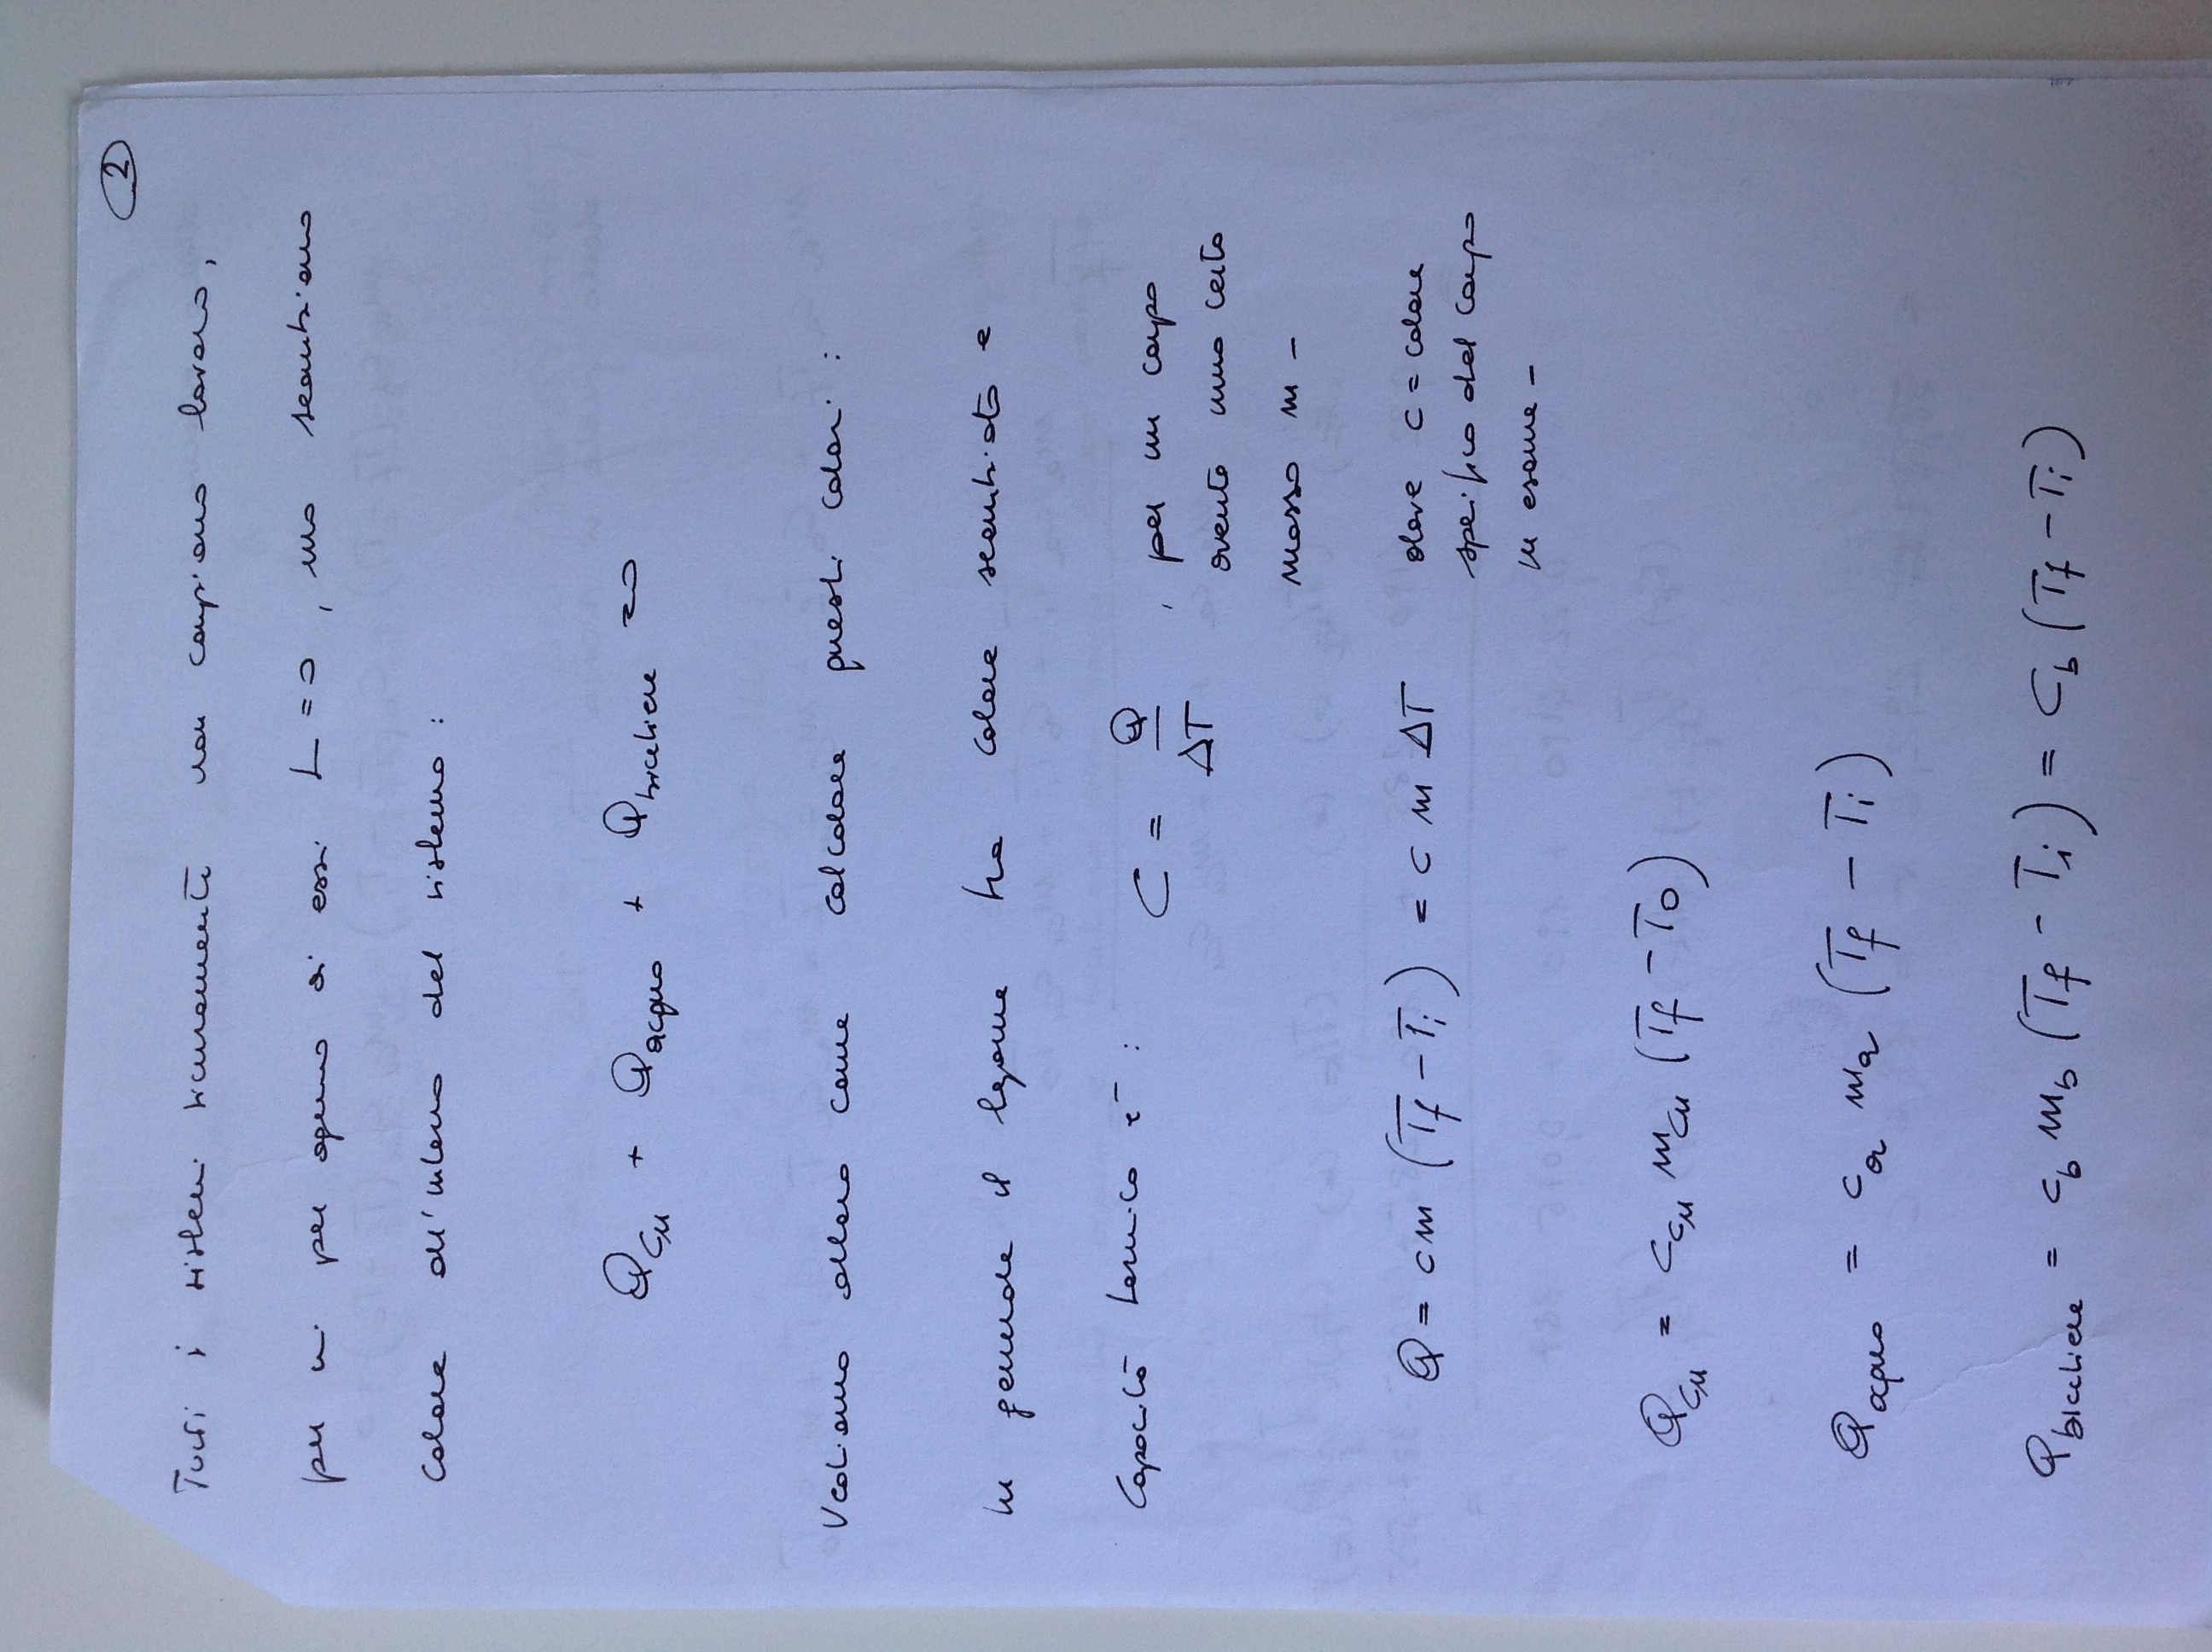 2
Tutti i sistemi sicuramente non compiono lavoro,
per cui per ognuno di essi L = 0, ma scambiano
calore all'interno del sistema:
Q_Cu + Q_acqua + Q_bicchiere = 0
Vediamo allora come calcolare questi calori:
In generale il legame tra calore scambiato e
capacità termica è: C = Q/ΔT, per un corpo
avente una certa
massa m -
Q = cm (T_f - T_i) = c m ΔT dove c = calore
specifico del corpo
in esame -
Q_Cu = c_Cu m_Cu (T_f - T_0)
Q_acqua = c_a m_a (T_f - T_i)
Q_bicchiere = c_b m_b (T_f - T_i) = C_b (T_f - T_i)